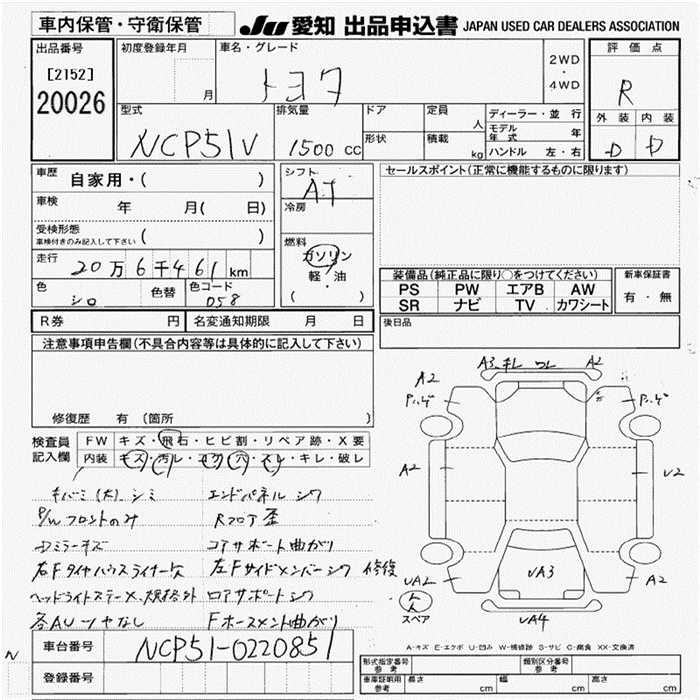 車内保管・守衛保管
JU 愛知 出品申込書 JAPAN USED CAR DEALERS ASSOCIATION
出品番号
[2152]
20026
初度登録年月
月
車名・グレード
トヨタ
2WD
・
4WD
評価点
R
外装 内装
D D
型式
NCP51V
排気量
1500 cc
ドア
形状
定員
人
積載
kg
ディーラー・並行
モデル年式 年
ハンドル 左・右
車歴
自家用・( )
車検
年 月( 日)
受検形態
車検付きのみ記入して下さい ( )
走行
20万6千461km
色
シロ
色替
色コード
058
シフト
AT
冷房
燃料
ガソリン
軽・油
( ・ )
セールスポイント(正常に機能するものに限ります)
装備品(純正品に限り○をつけてください)
PS PW エアB AW
SR ナビ TV カワシート
新車保証書
有・無
R券 円 名変通知期限 月 日
後日品
注意事項申告欄(不具合内容等は具体的に記入して下さい)
修復歴 有 (箇所 )
検査員記入欄
FW キズ・飛石・ヒビ割・リペア跡・X要
内装 キズ・汚レ・コゲ・穴・スレ・キレ・破レ
キバミ(大)、シミ
P/W フロントのみ
Dミラーキズ
右Fタイヤハウスライナー欠
ヘッドライトステー×、規格外
各AUツヤなし
エンドパネル シワ
Rフロア歪
コアサポート曲がり
左Fサイドメンバーシワ 修復
ロアサポートシワ
Fホースメント曲がり
A3 キレ ワレ A2
A2
A2
U2
UA2
UA3
A2
UA4
スペア
A-キズ E-エクボ U-凹み W-補修跡 S-サビ C-腐食 XX-交換済
車台番号 NCP51-0220851
登録番号
N
型式指定番号
参考
類別区分番号
参考
車庫証明用
参考
長さ cm
幅 cm
高さ cm